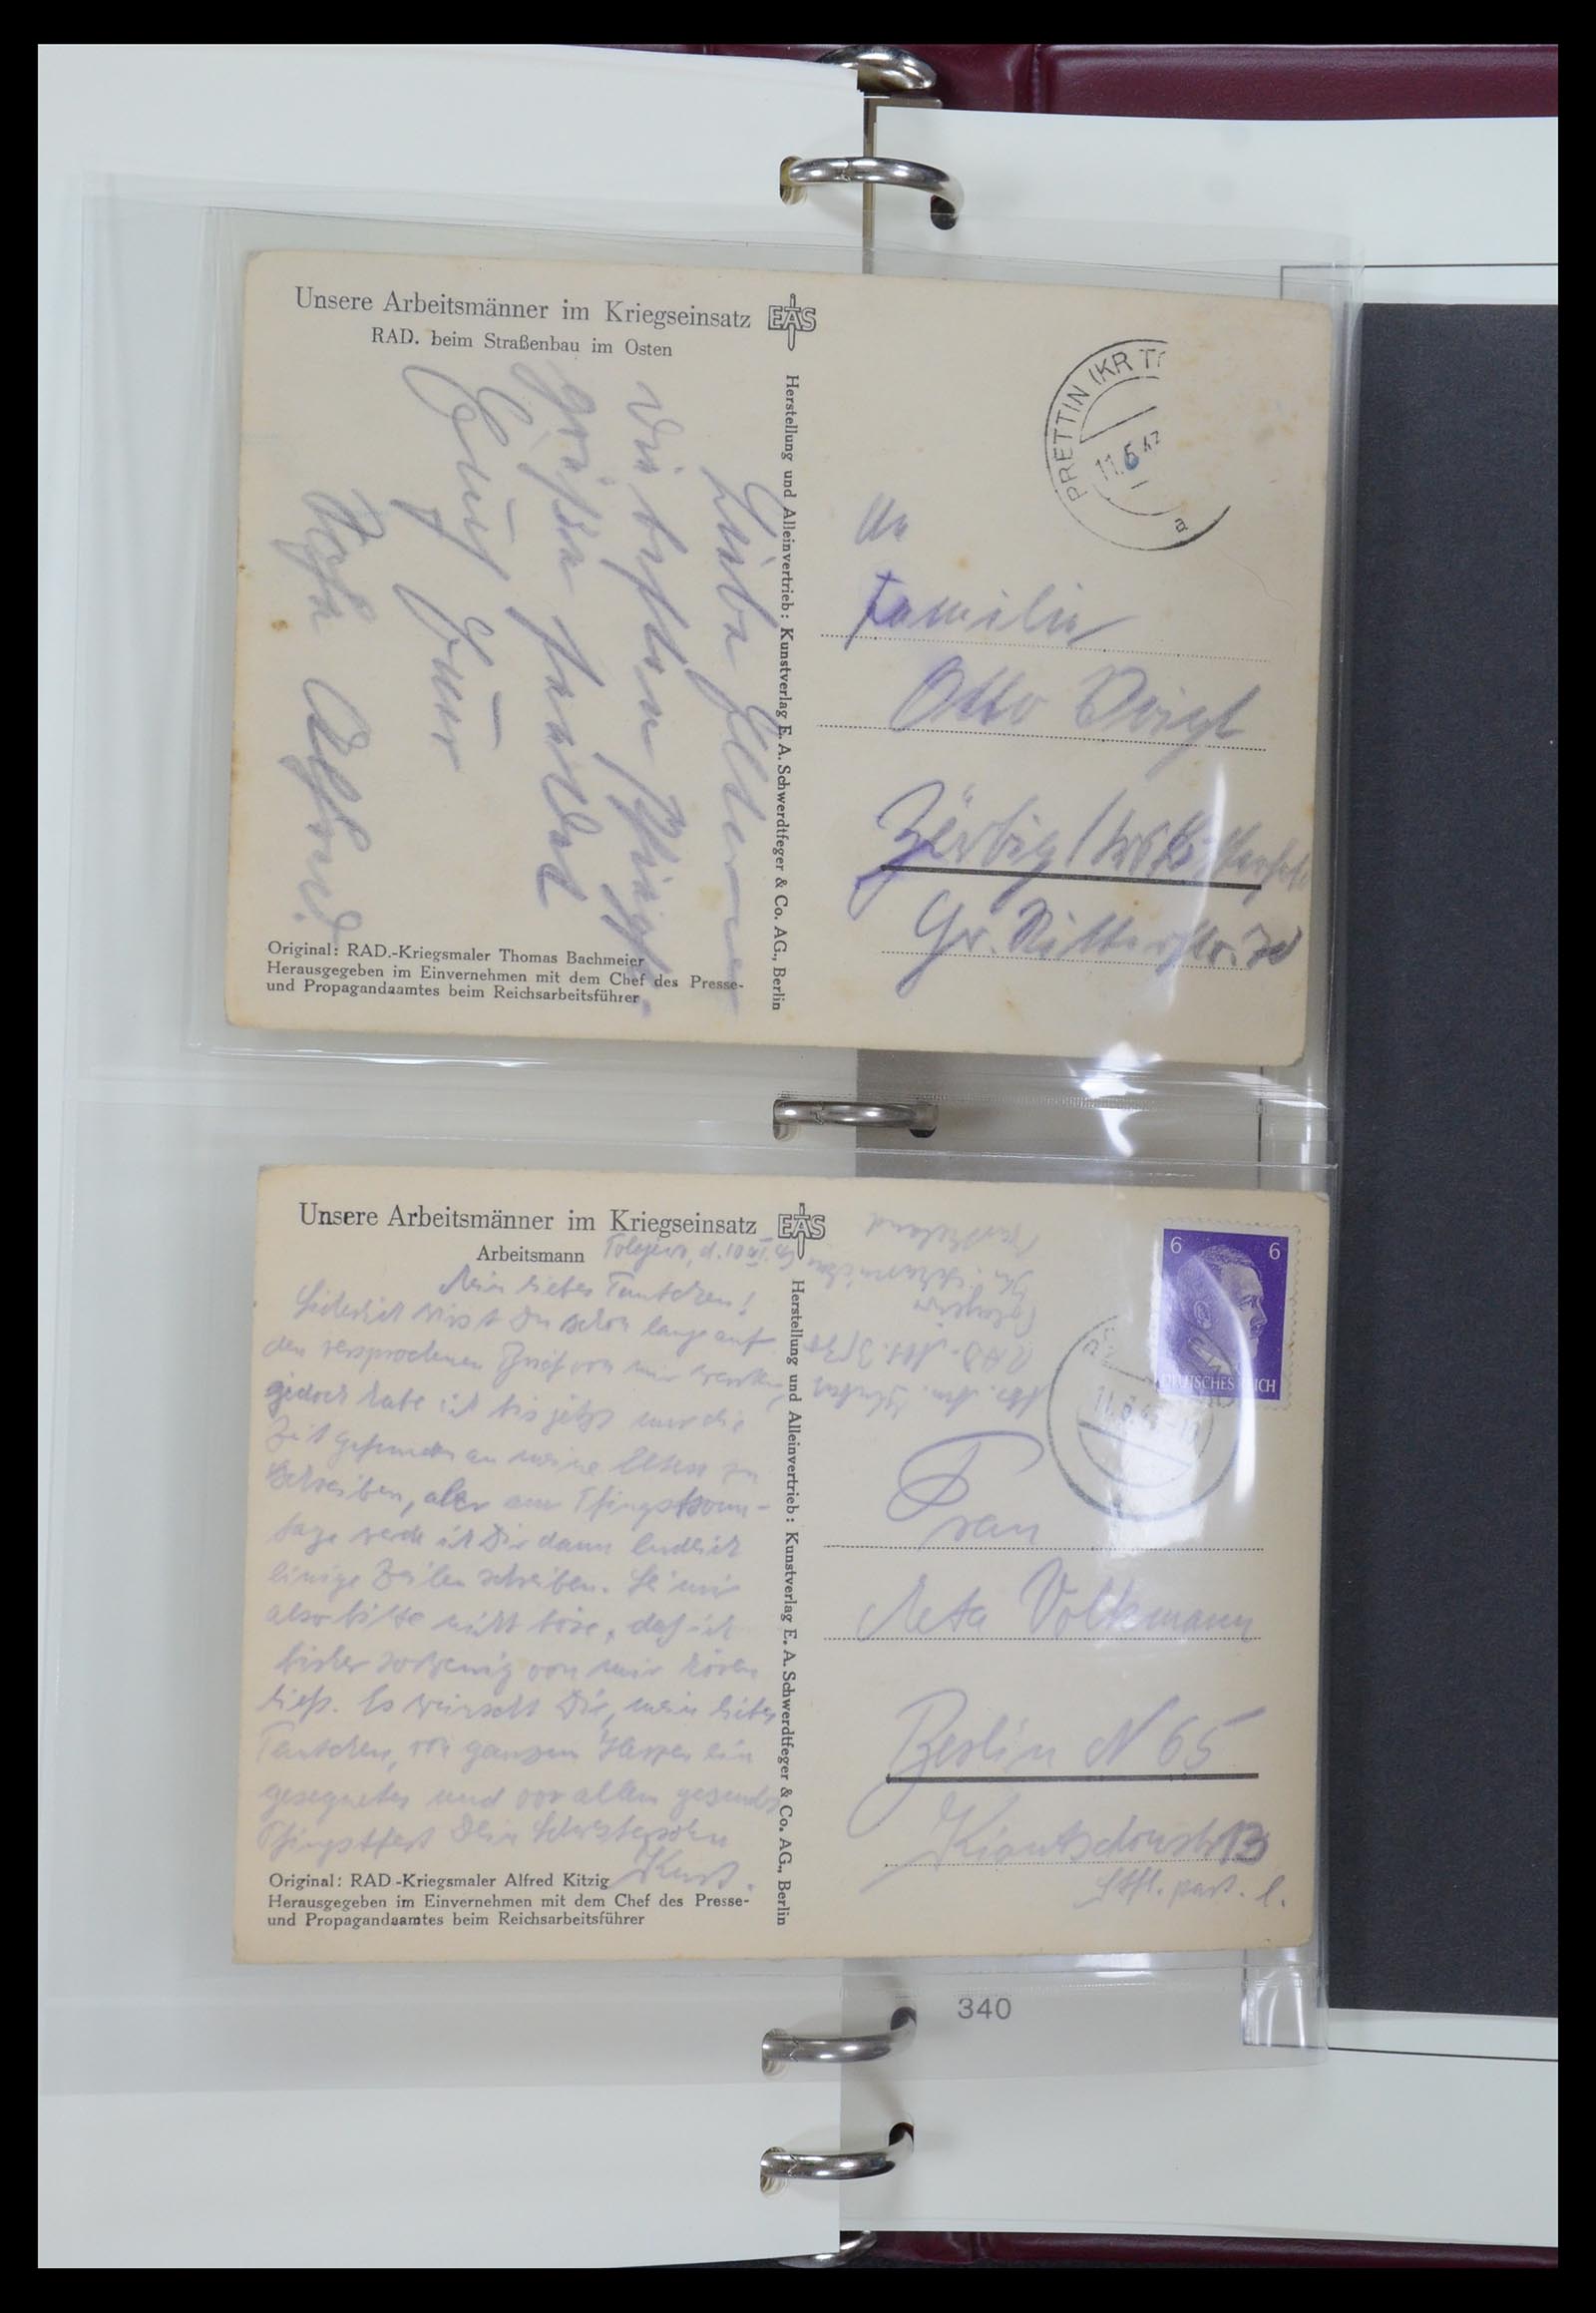 Unsere Arbeitsmänner im Kriegseinsatz
RAD. beim Straßenbau im Osten
EAS
Herstellung und Alleinvertrieb: Kunstverlag E. A. Schwerdtfeger & Co. AG., Berlin
Liebe Eltern
Die besten Pfingst-
grüße sendet
Euch Euer
Sohn
PRETTIN (KR T
11.6.4
a
An
Familie
Otto Voigt
Zörbig / Krs. Bitterfeld
Gr. Ritterstr.
Original: RAD.-Kriegsmaler Thomas Bachmeier
Herausgegeben im Einvernehmen mit dem Chef des Presse-
und Propagandaamtes beim Reichsarbeitsführer
Unsere Arbeitsmänner im Kriegseinsatz
Arbeitsmann
EAS
Herstellung und Alleinvertrieb: Kunstverlag E. A. Schwerdtfeger & Co. AG., Berlin
Mein liebes Tantchen!
Sicherlich wirst Du schon lange auf
den versprochenen Brief von mir warten,
jedoch habe ich bis jetzt nur die
Zeit gefunden an meine Eltern zu
schreiben, aber am Pfingstsonn-
tage werde ich Dir dann endlich
einige Zeilen schreiben. Sei mir
also bitte nicht böse, daß ich
bisher so wenig von mir hören
ließ. Es wünscht Dir, mein liebes
Tantchen, von ganzem Herzen ein
gesegnetes und vor allem gesundes
Pfingstfest Dein Schwestersohn
Kurt.
6 6
DEUTSCHES REICH
Frau
Meta Volkmann
Berlin N 65
Kiautschoustr. 13
Stfl. part. l.
Original: RAD-Kriegsmaler Alfred Kitzig
Herausgegeben im Einvernehmen mit dem Chef des Presse-
und Propagandaamtes beim Reichsarbeitsführer
340